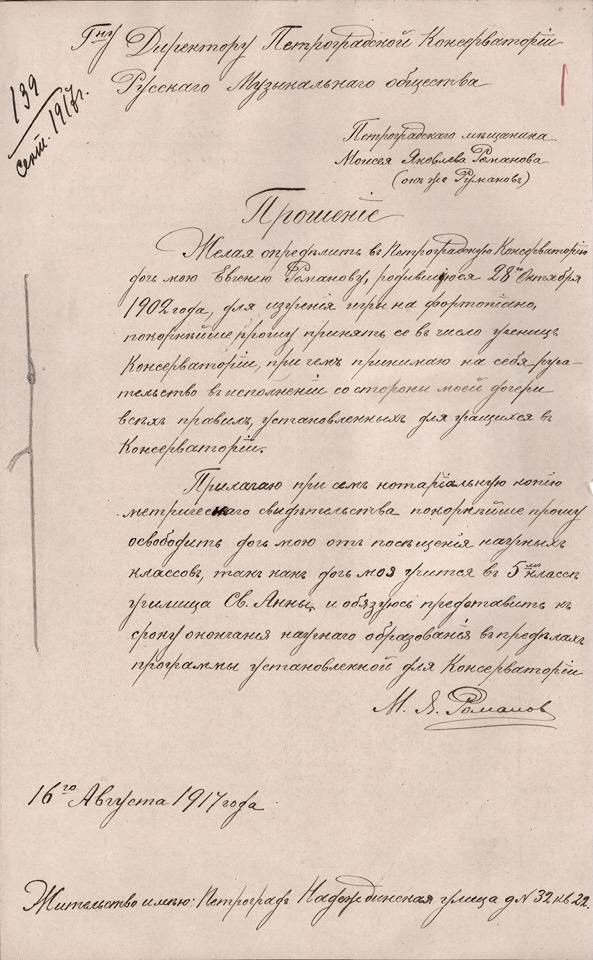 Гну Директору Петроградской Консерваторіи
Русскаго Музыкальнаго общества
139
сент. 1917г.
Петроградскаго мѣщанина
Моисея Яковлева Романова
(онъ же Румановъ)
Прошеніе
Желая опредѣлить въ Петроградскую Консерваторію
дочь мою Евгенію Романову, родившуюся 28го Октября
1902 года, для изученія игры на фортопіано,
покорнѣйше прошу принять ее въ число ученицъ
Консерваторіи, при чемъ принимаю на себя руча-
тельство въ исполненіи со стороны моей дочери
всѣхъ правилъ, установленныхъ для учащихся въ
Консерваторіи.
Прилагаю при семъ нотаріальную копію
метрическаго свидѣтельства покорнѣйше прошу
освободить дочь мою отъ посѣщенія научныхъ
классовъ, такъ какъ дочь моя учится въ 5мъ классѣ
училища Св. Анны, и обязуюсь представить къ
сроку окончанія научнаго образованія въ предѣлахъ
программы установленной для Консерваторіи
М. Я. Романов
16го Августа 1917 года
Жительство имѣю: Петроградъ Надеждинская улица д N 32 кв 22.